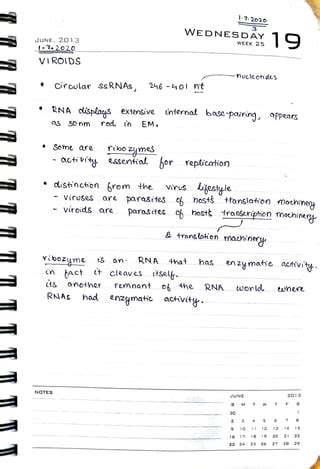 1.7.2020
3
WEDNESDAY 19
WEEK 25
JUNE, 2013
1.7.2020
VIROIDS
nucleotides
• Circular ssRNAs, 246-401 nt
• RNA displays extensive internal base-pairing, appears
as 50nm rod in EM.
• some are ribozymes
- activity essential for replication
• distinction from the virus lifestyle
- viruses are parasites of hosts translation machinery
- viroids are parasites of hosts transcription machinery
& translation machinery
ribozyme is an RNA that has enzymatic activity.
in fact it cleaves itself.
its another remnant of the RNA world where
RNAs had enzymatic activity.
NOTES
JUNE 2013
S M T W T F S
30 1
2 3 4 5 6 7 8
9 10 11 12 13 14 15
16 17 18 19 20 21 22
23 24 25 26 27 28 29